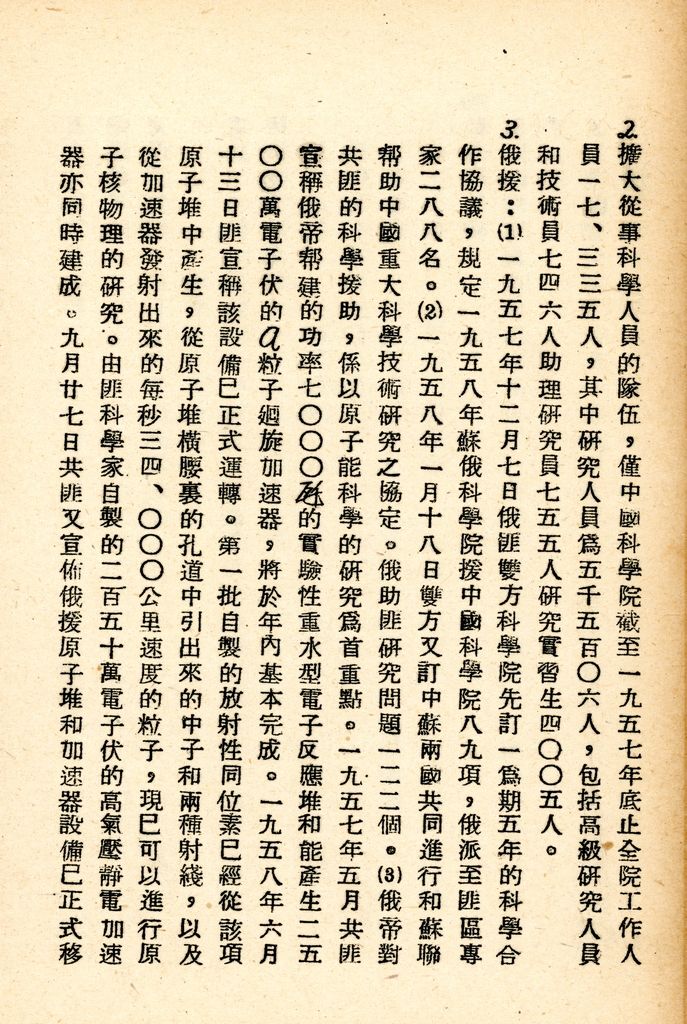 2.擴大從事科學人員的隊伍，僅中國科學院截至一九五七年底止全院工作人
員一七、三三五人，其中研究人員爲五千五百〇六人，包括高級研究人員
和技術員七四六人助理研究員七五五人研究實習生四〇〇五人。
3.俄援：(1)一九五七年十二月七日俄匪雙方科學院先訂一爲期五年的科學合
作協議，規定一九五八年蘇俄科學院援中國科學院八九項，俄派至匪區專
家二八八名。(2)一九五八年一月十八日雙方又訂中蘇兩國共同進行和蘇聯
帮助中國重大科學技術研究之協定。俄助匪研究問題一二二個。(3)俄帝對
共匪的科學援助，係以原子能科學的研究爲首重點。一九五七年五月共匪
宣稱俄帝帮建的功率七〇〇〇瓩的實驗性重水型電子反應堆和能產生二五
〇〇萬電子伏的α粒子廻旋加速器，將於年內基本完成。一九五八年六月
十三日匪宣稱該設備已正式運轉。第一批自製的放射性同位素已經從該項
原子堆中產生，從原子堆橫腰裏的孔道中引出來的中子和兩種射綫，以及
從加速器發射出來的每秒三四、〇〇〇公里速度的粒子，現已可以進行原
子核物理的研究。由匪科學家自製的二百五十萬電子伏的高氣壓靜電加速
器亦同時建成。九月廿七日共匪又宣佈俄援原子堆和加速器設備已正式移